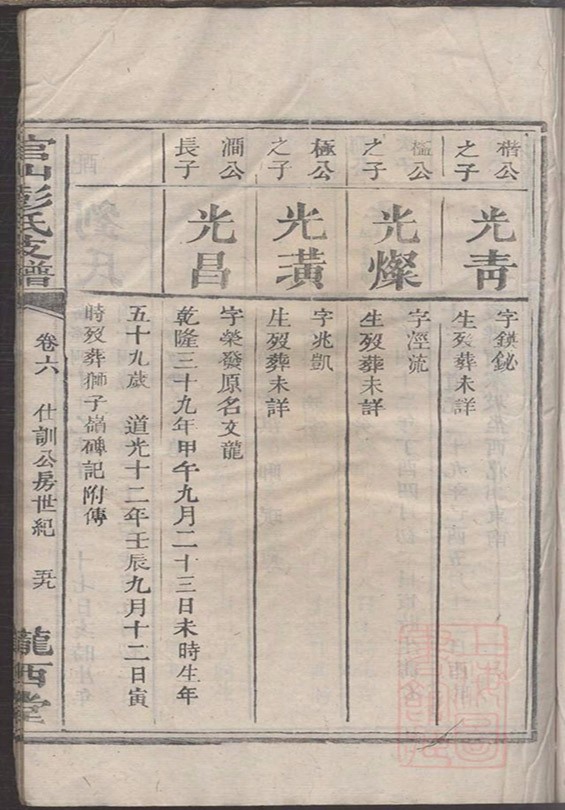 楷公
之子
光青
字鎂鉍
生歿葬未詳
公
之子
光燦
字滛流
生歿葬未詳
極公
之子
光潢
字兆凱
生歿葬未詳
澗公
長子
光昌
字榮發原名文龍
乾隆三十九年甲午九月二十三日未時生年
五十九歲 道光十二年壬辰九月十二日寅
時歿葬獅子嶺碑記附傳
官山彭氏支譜
卷六 仕訓公房世紀 五九
隴西堂